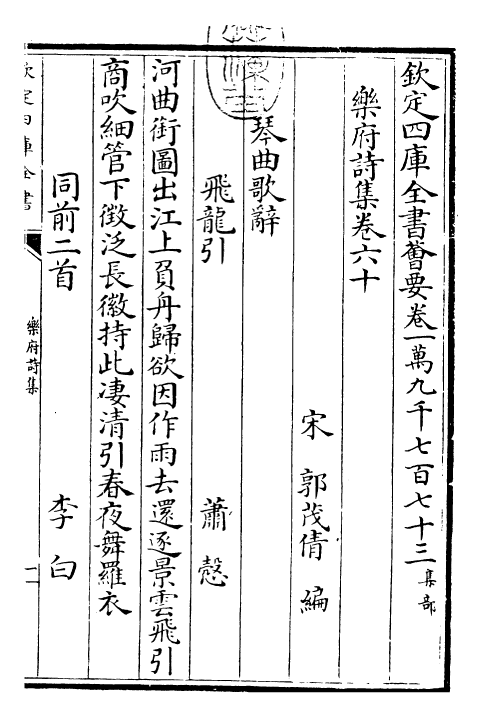 欽定四庫全書薈要卷一萬九千七百七十三集部
樂府詩集卷六十
宋 郭茂倩 編
琴曲歌辭
飛龍引 蕭慤
河曲銜圖出江上負舟歸欲因作雨去還逐景雲飛引
商吹細管下徵泛長徽持此淒清引春夜舞羅衣
同前二首 李白
欽定四庫全書
樂府詩集
一